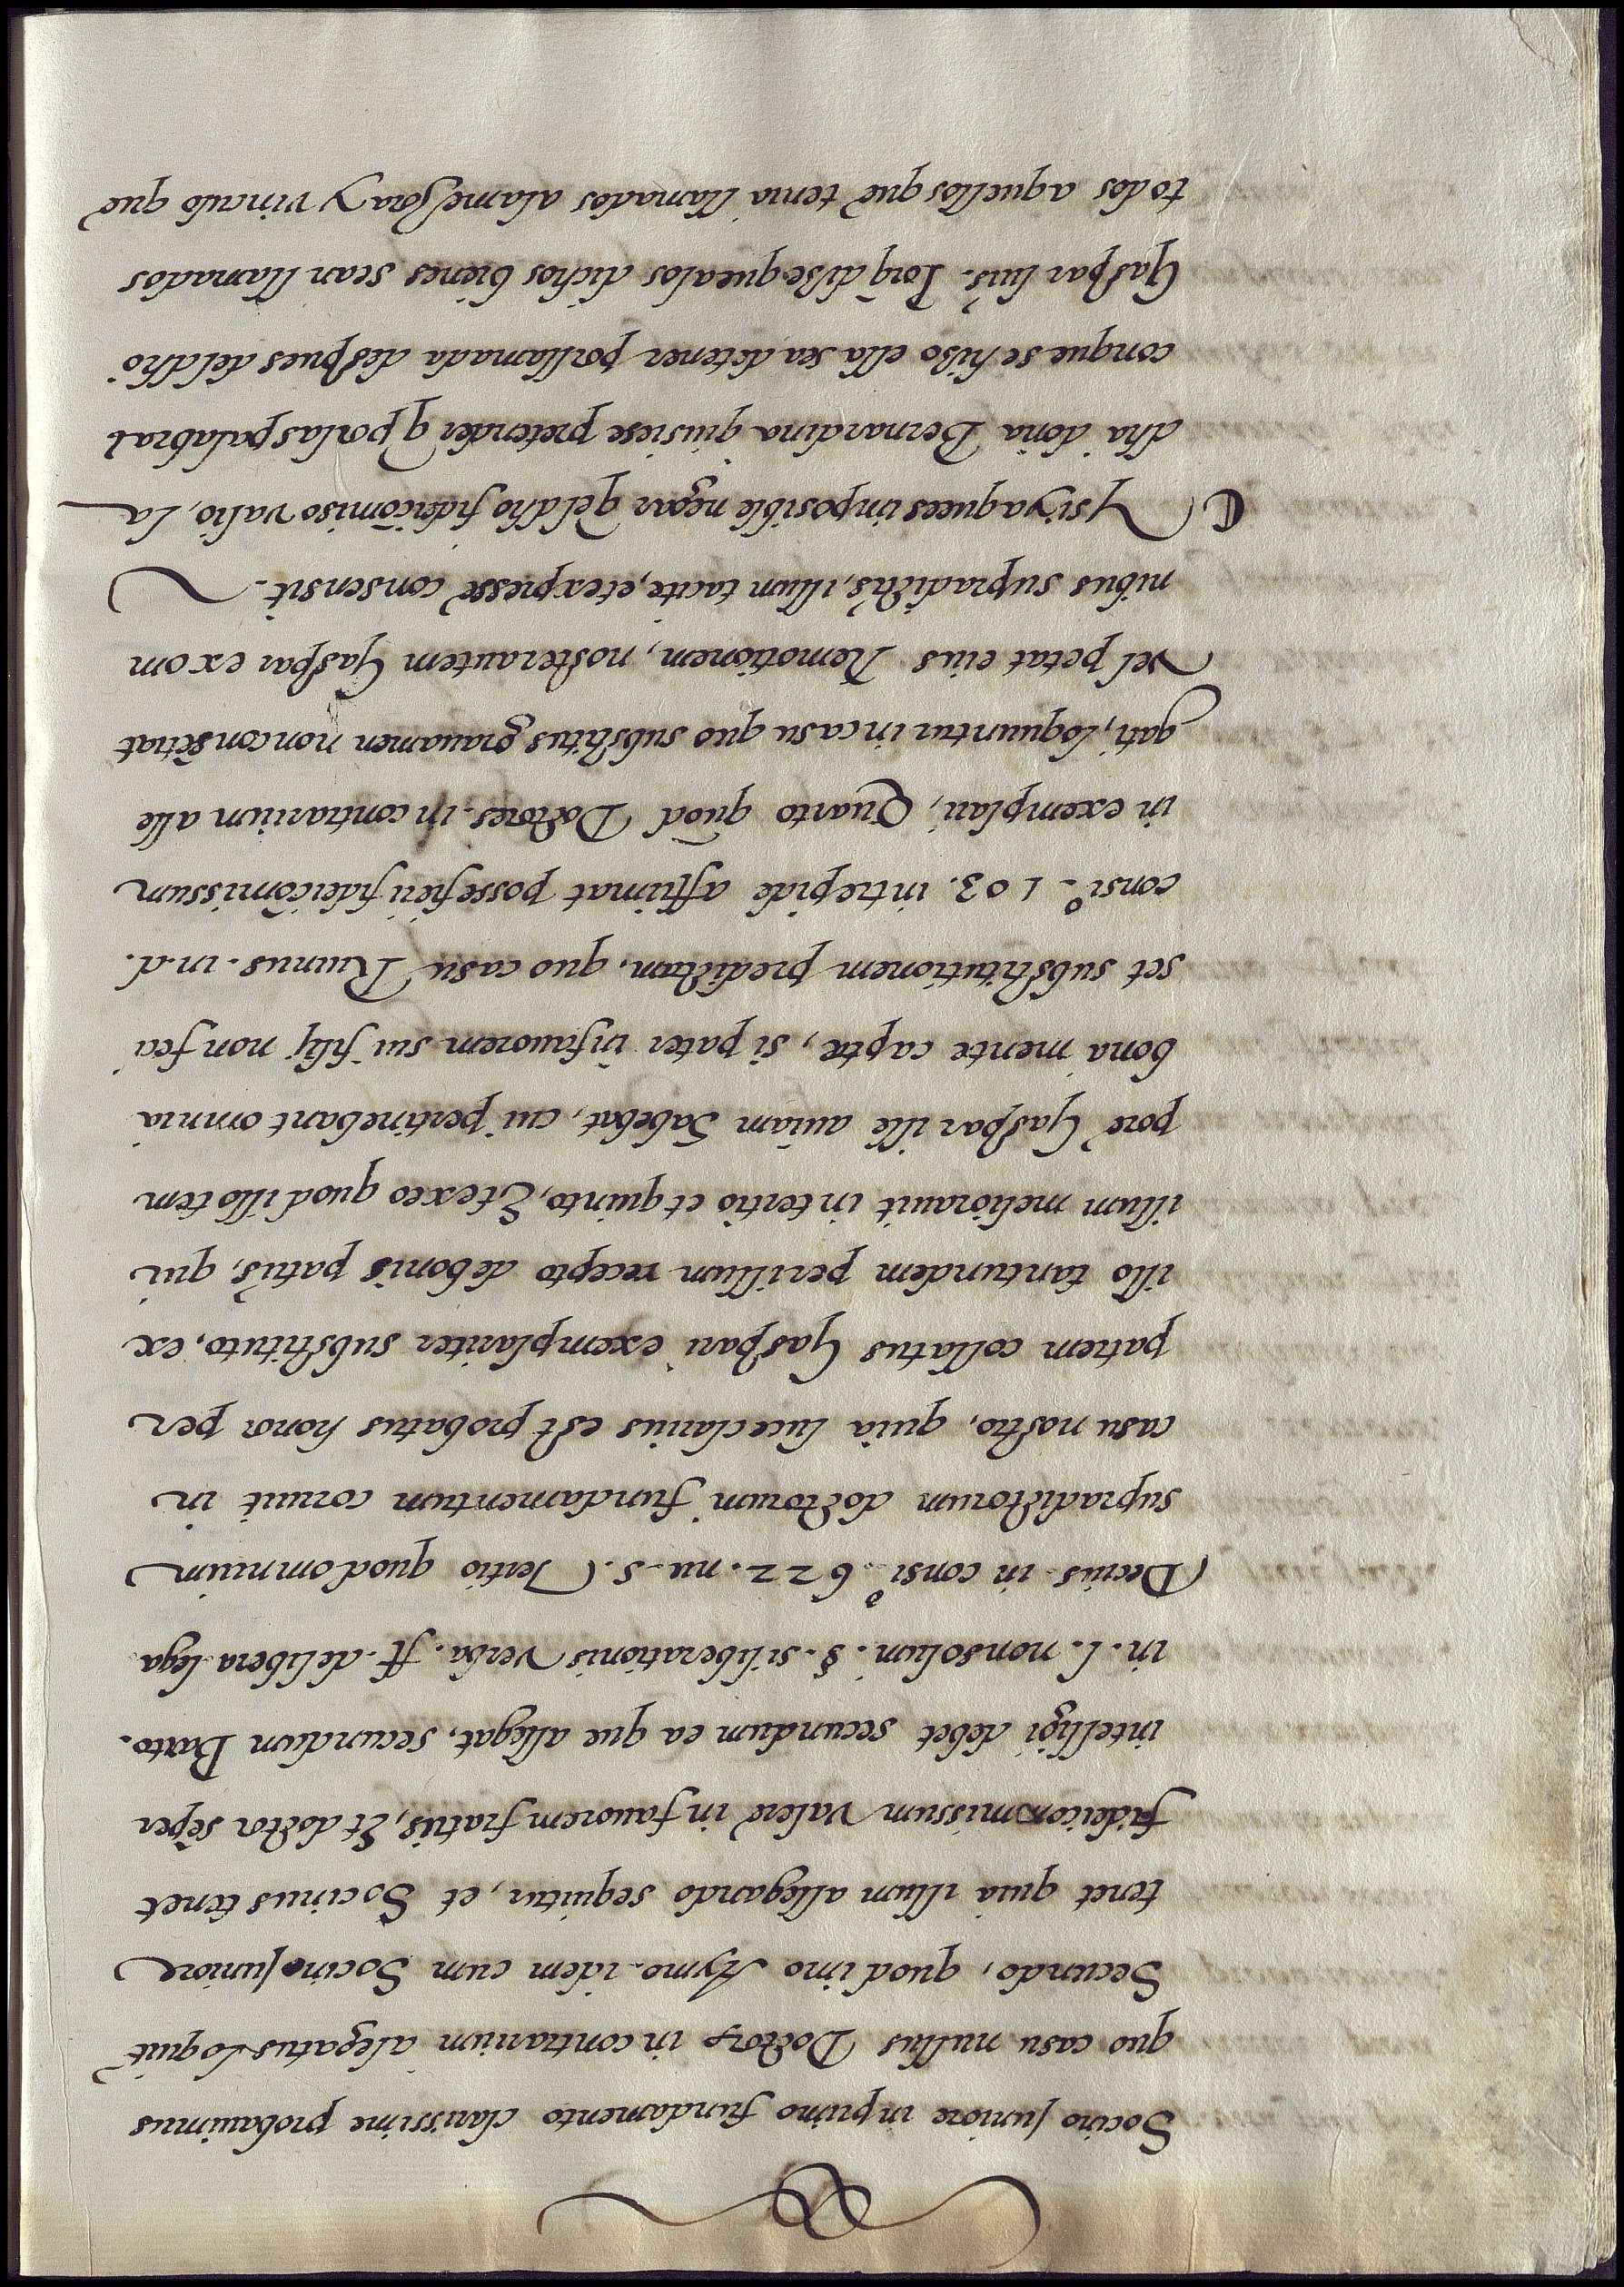 Socino Juniore in primo fundamento clarissime probauimus
quo casu nullus Doctor in contrarium alegatus loquit̃
Secundo, quod imo Aymo idem cum Socino Juniore
tenet quia illum allegando sequitur, et Socinus tenet
fideicommissum valere in fauorem fratris, Et doctor sẽper
intelligi debet secundum ea que allegat, secundum Barto.
in. l. non solum. §. si liberationis verba. ff. de libera lega
Decius in consi.º 622. nu. 5. Tertio quod omnium
supradictorum doctorum fundamentum corruit in
casu nostro, quia luce clarius est probatus honor per
patrem collatus Gaspari exemplariter substituto, ex
illo tantundem per illum recepto de bonis patris, qui
illum meliorauit in tertio et quinto, Et ex eo quod illo tem
pore Gaspar ille auiam habebat, cui pertinebant omnia
bona mente captæ, si pater in fauorem sui filij non feci
set substitutionem predictam, quo casu Ruinus. in. d.
consi.º 103. intrepide affirmat posse fieri fideicõmissum
in exemplari, Quarto quod Doctores in contrarium alle
gati, loquuntur in casu quo substitus grauamen non consẽtiat
vel petat eius Remotionem, noster autem Gaspar ex om
nibus supradictis, illum tacite, et expresse consensit.
C Y si ya que es imposible negar q̃l dh̃o fideicõmiso valio, La
dh̃a doña Bernardina quisiese pretender q̃ por las palabras
con que se hiso ella sea de tener por llamada despues del dh̃o
Gaspar luis. Porq̃ dise que a los dichos bienes sean llamados
todos aquellos que tenia llamados a la mejora y vinculo que